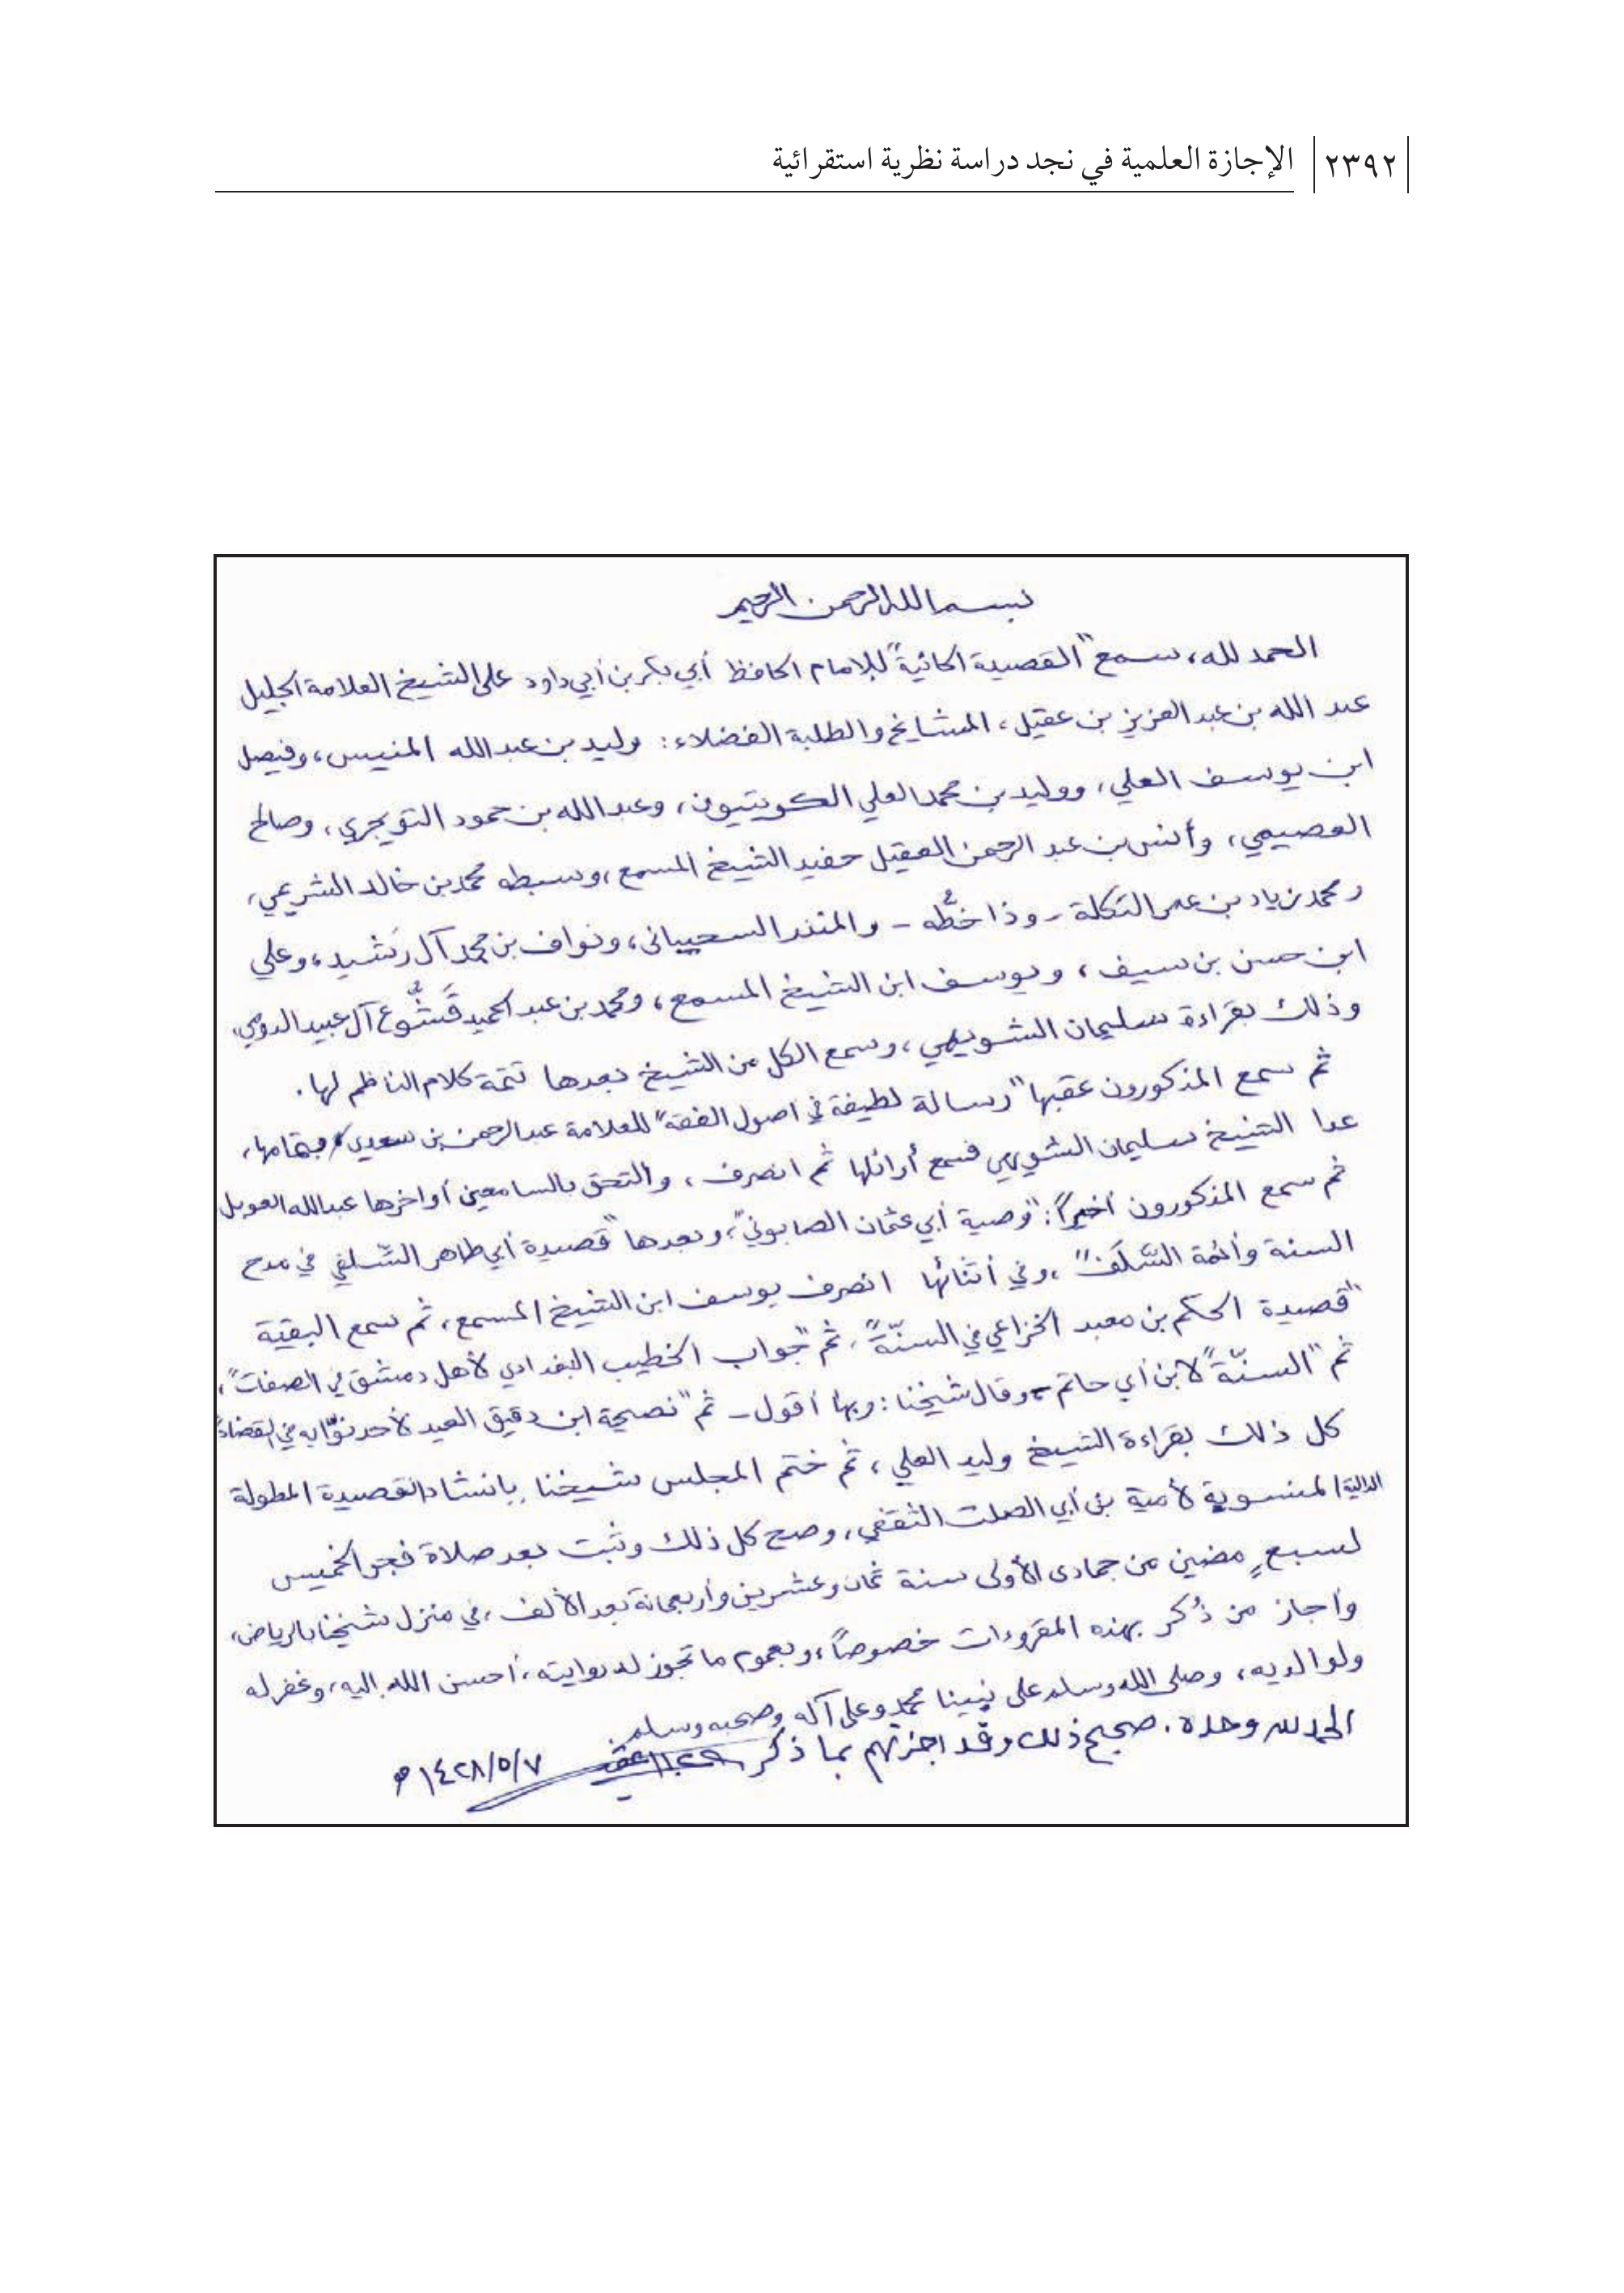 ٢٣٩٢ الإجازة العلمية في نجد دراسة نظرية استقرائية
بسم الله الرحمن الرحيم
الحمد لله، سمع "القصيدة الحائية" للإمام الحافظ أبي بكر بن أبي داود على الشيخ العلامة الجليل
عبد الله بن عبد العزيز بن عقيل، المشايخ والطلبة الفضلاء: وليد بن عبد الله المنيس، وفيصل
ابن يوسف العلي، ووليد بن محمد العلي الكويتيون، وعبد الله بن حمود التويجري، وصالح
العصيمي، وأنس بن عبد الرحمن العقيل حفيد الشيخ المسمع، وسبطه محمد بن خالد الشريمي،
ومحمد زياد بن عمر التكلة - وذا خطُّه - والمنذر السحيباني، ونواف بن محمد آل رَشيد، وعلي
ابن حسن بن سيف، ويوسف ابن الشيخ المسمع، ومحمد بن عبد الحميد قَشُّوع آل عبيد الدومي،
وذلك بقراءة سليمان الشويهي، وسمع الكل من الشيخ بعدها تتمة كلام الناظم لها.
ثم سمع المذكورون عقبها "رسالة لطيفة في اصول الفقه" للعلامة عبد الرحمن بن سعدي بتمامها،
عدا الشيخ سليمان الشويهي فسمع أوائلها ثم انصرف، والتحق بالسامعين أواخرها عبد الله العوبل
ثم سمع المذكورون أخيراً: "وصية أبي عثمان الصابوني"، وبعدها "قصيدة أبي طاهر السِّلفي في مدح
السنة وأئمة السَّلَف"، وفي أثنائها انصرف يوسف ابن الشيخ المسمع، ثم سمع البقية
"قصيدة الحكم بن معبد الخزاعي في السنّة"، ثم "جواب الخطيب البغدادي لأهل دمشق في الصفات"،
ثم "السنّة" لابن أبي حاتم - وقال شيخنا: وبها أقول - ثم "نصيحة ابن دقيق العيد لأحد نوّابه في القضاء"
كل ذلك بقراءة الشيخ وليد العلي، ثم ختم المجلس شيخنا بإنشاد القصيدة المطولة
الدالية المنسوبة لأمية بن أبي الصلت الثقفي، وصح كل ذلك وثبت بعد صلاة فجر الخميس
لسبعٍ مضين من جمادى الأولى سنة ثمان وعشرين وأربعمائة بعد الألف، في منزل شيخنا بالرياض،
وأجاز من ذُكر بهذه المقروءات خصوصاً، وبعموم ما تجوز له روايته، أحسن الله إليه، وغفر له
ولوالديه، وصلى الله وسلم على نبينا محمد وعلى آله وصحبه وسلم.
الحمد لله وحده. صحيح ذلك وقد اجزتهم بما ذكر ١٤٢٨/٥/٧ ه